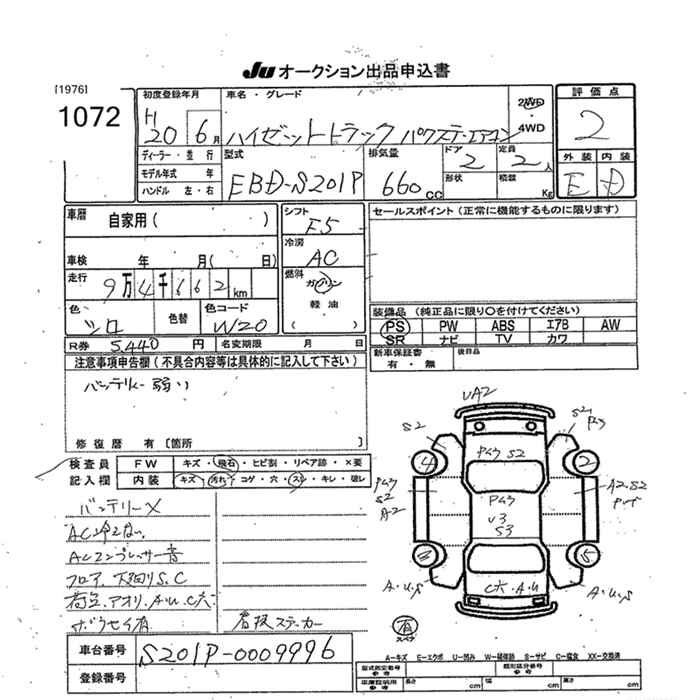 Ju オークション出品申込書
[1976]
1072
初度登録年月
H 20 6月
車名・グレード
ハイゼットトラック パワステ・エアコン
2WD
4WD
評価点
2
外装 内装
E D
ディーラー・並行
モデル年式 年
ハンドル 左・右
型式
EBD-S201P
排気量
660cc
ドア
2
定員
2人
形状
積載
Kg
車歴
自家用( )
車検 年 月( 日)
走行
9万4千662km
色
シロ
色替
色コード
W20
シフト
F5
冷房
AC
燃料
ガソリン
軽油
( )
セールスポイント(正常に機能するものに限ります)
装備品(純正品に限り○を付けてください)
PS PW ABS エアB AW
SR ナビ TV カワ
新車保証書
有・無
後日品
R券 5,440円
名変期限 月 日
注意事項申告欄(不具合内容等は具体的に記入して下さい)
バッテリー弱い
修復歴 有[箇所 ]
検査員
記入欄
FW キズ・飛石・ヒビ割・リペア跡・×要
内装 キズ・汚れ・コゲ・穴・スレ・キレ・破レ
バッテリーX
AC冷えない
ACコンプレッサー音
フロア、下廻りS.C
荷台、アオリ.A.U.C大
サビ
看板ステッカー
UA2
S2
S2
4
2
PムラS2
Pムラ
S2
A2
Pムラ
U3
S3
A2.S2
5
A.U.S
C大.A.U
A.U.S
有
スペア
車台番号
S201P-0009996
登録番号
A…キズ E…エクボ U…凹み W…補修跡 S…サビ C…腐食 XX…交換済
型式指定番号
参考
類別区分番号
参考
車庫証明用
参考
長さ cm
幅 cm
高さ cm